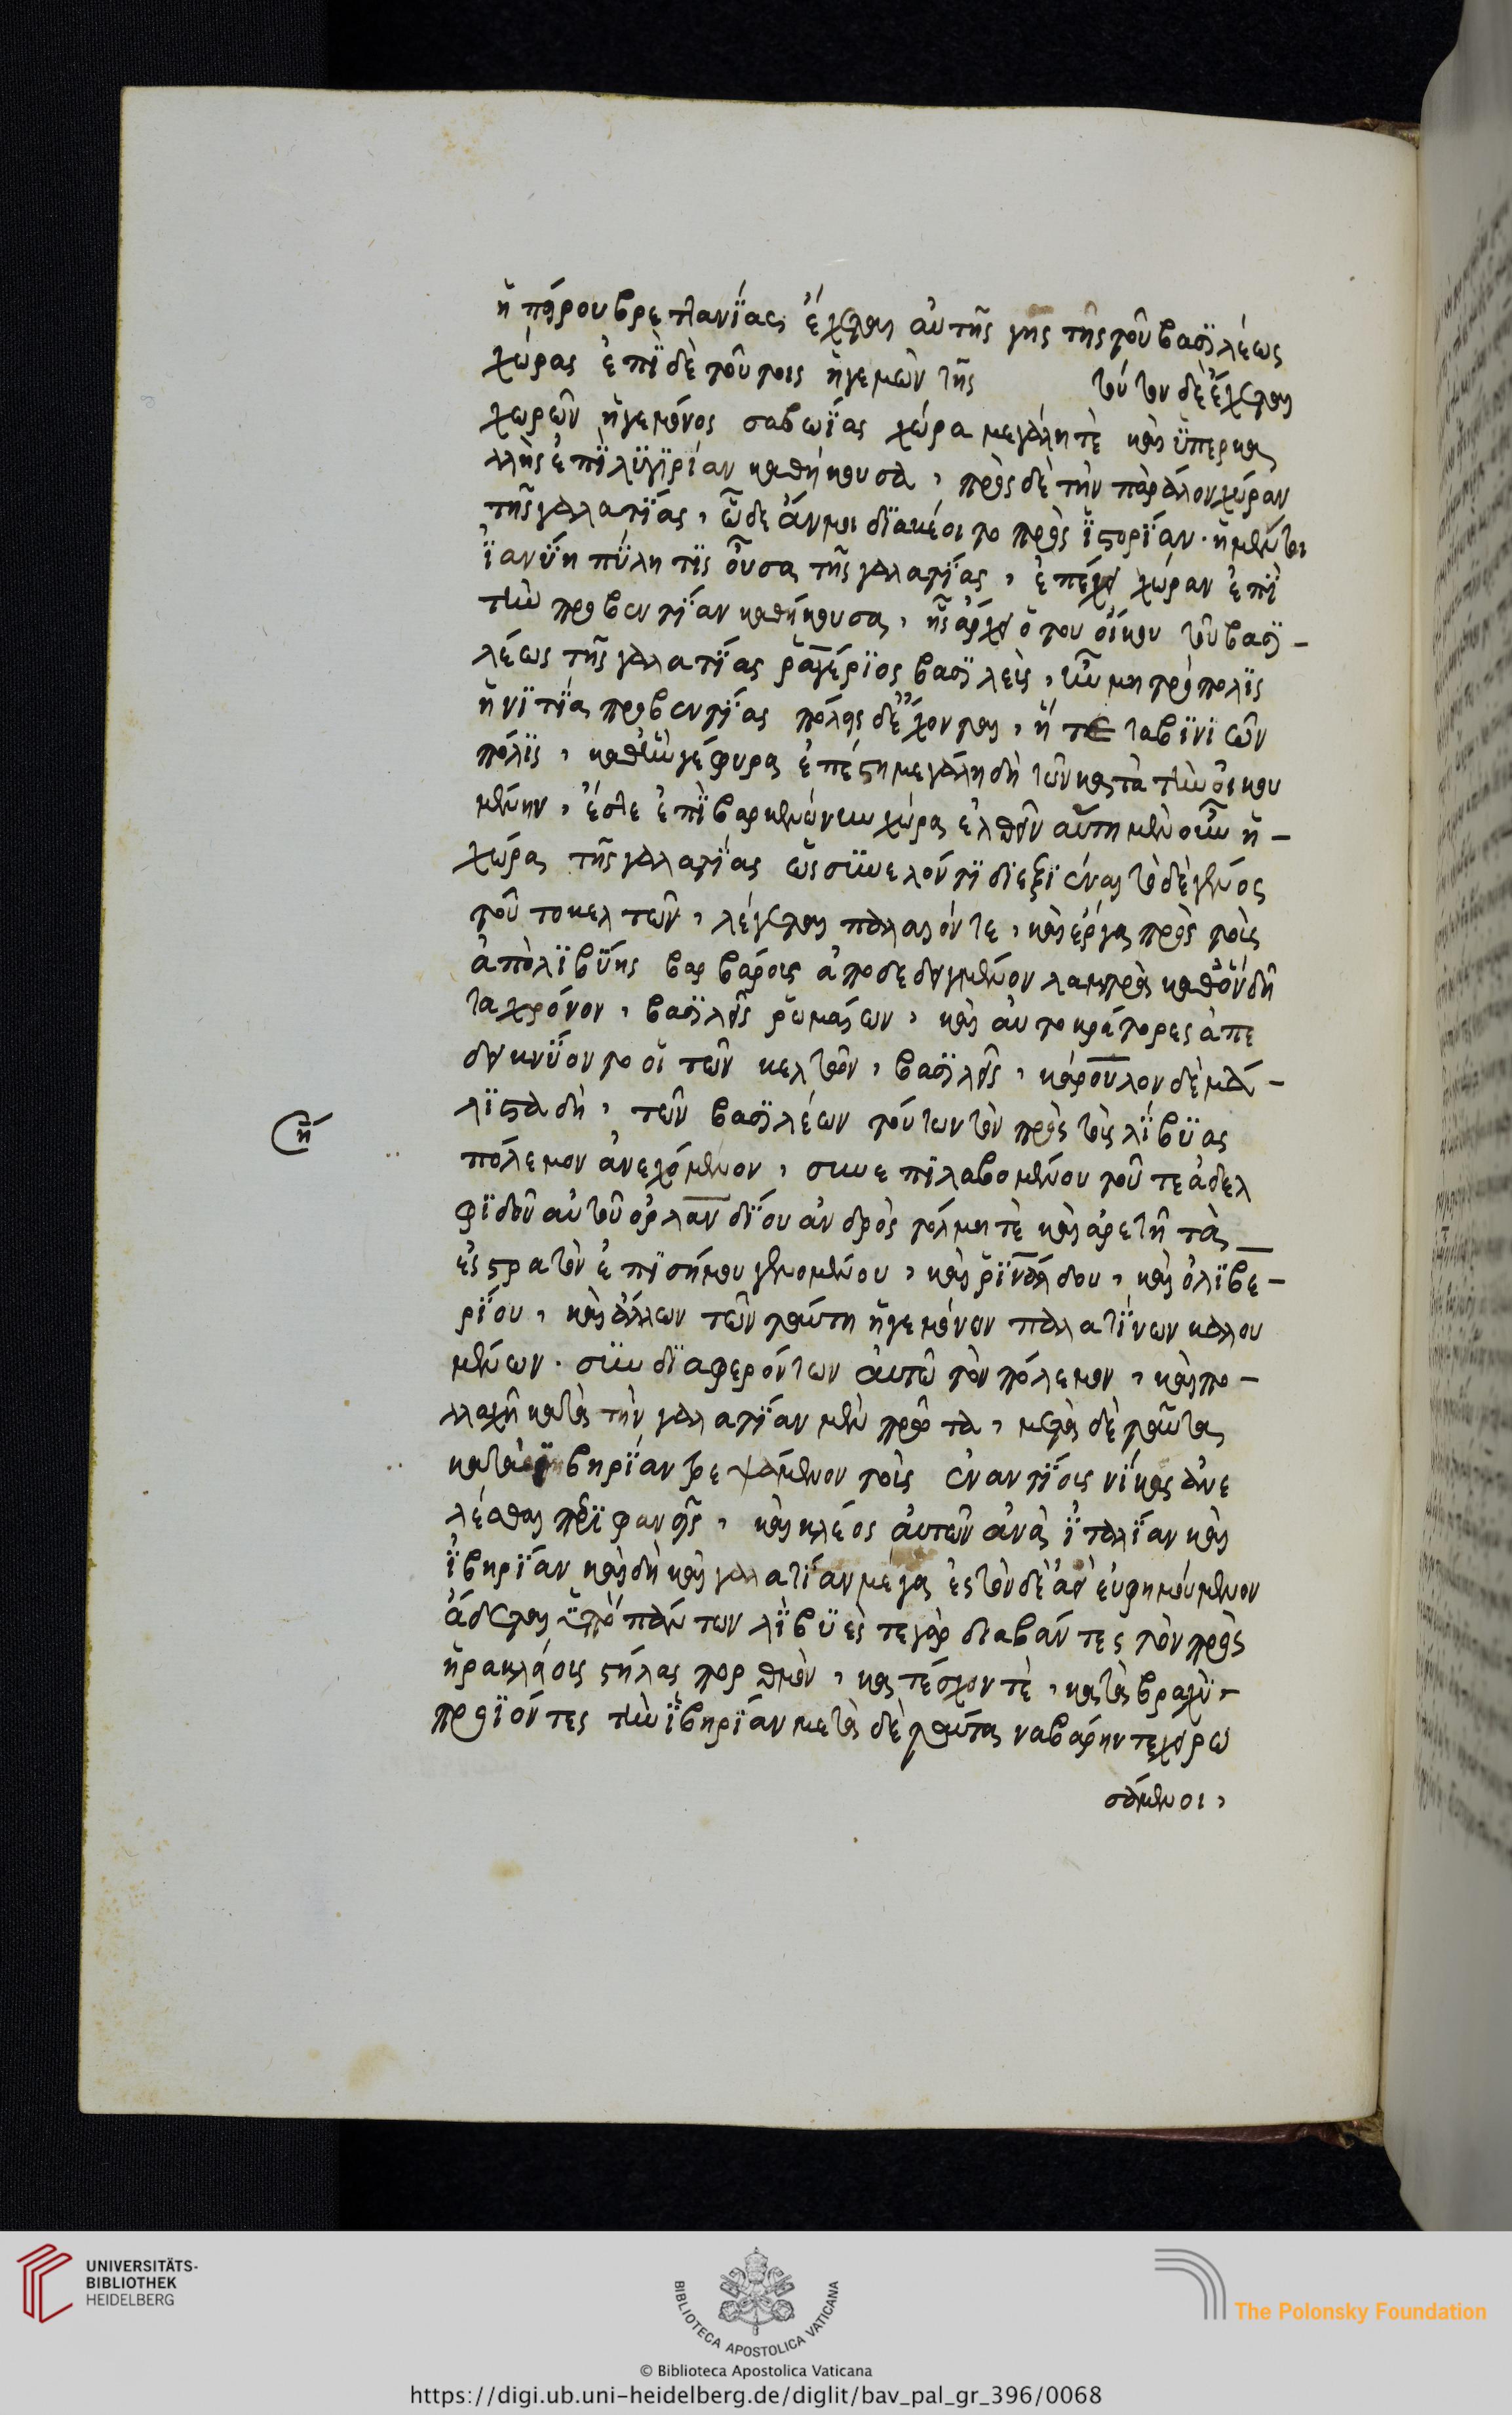 ἢ πόρου βρετανΐας ἔχεται αὐτῆς γῆς τῆς τοῦ βασϊλέως
χώρας ἐπῒ δὲ τούτοις ἡγεμὼν τῆς τούτου δὲ ἔχεται
χωρῶν ἡγεμόνος σαβωΐας χώρα μεγάλη τὲ καὶ ὑπερκα
λλὴς ἐπῒ λϊγϊρίαν καθήκουσα, πρὸς δὲ τὴν πάραλον χώραν
τῆς γαλατΐας, ὧδε ἄν μοι δϊακέοιτο πρὸς ἱστορΐαν. ἡ μέντοι
ἰανΰη πΰλη τΐς οὖσα τῆς γαλατΐας, ἐπέχει χώραν ἐπῒ
τὴν προβεντΐαν καθήκουσα, ἧς ἄρχει ὁ του οἴκου τοῦ βασϊ-
λέως τῆς γαλατΐας ῥαγέρϊος βασϊλεὺς, ὧν μητρόπολϊς
ἡ νϊτΐα προβεντΐας πόλις δὲ ἔχονται, ἥ τε ταβϊνϊῶν
πόλϊς, καθ' ἣν γέφυρα ἐπέστη μεγάλη δὴ τῶν κατὰ τὴν οἰκου
μένην, ἔστε ἐπῒ βαρκενώνων χώρας ἐλθεῖν αὕτη μὲν οὖν ἡ-
χώρα τῆς γαλατΐας ὡς συνελόντϊ διεξϊέναι τὸ δὲ γένος
τοῦτο κελτῶν, λέγεται παλαιόν τε, καὶ ἔργα πρὸς τοὺς
ἀπὸ λϊβΰης βαρβάρους ἀποδεδειγμένον λαμπρὰ καθ' ὃν δὴ
τα χρόνον, βασϊλεῖς ῥωμαίων, καὶ αὐτοκράτορες ἀπε
δεικνΰοντο οἱ τῶν κελτῶν, βασϊλεῖς, κάρουλον δὲ μά-
λϊστα δὴ, τῶν βασϊλέων τούτων τὸν πρὸς τοὺς λϊβΰας
πόλεμον ἀνεχόμενον, συνεπϊλαβομένου τοῦ τε ἀδελ
φϊδοῦ αὐτοῦ ὀρλανδΐου ἀνδρὸς τόλμη τὲ καὶ ἀρετῆ τὰ
ἐς στρατὸν ἐπϊσήμου γενομένου, καὶ ῥϊνάλδου, καὶ ὀλϊβε-
ρΐου, καὶ ἄλλων τῶν ταύτη ἡγεμόνων παλατΐνων καλου
μένων. συνδϊαφερόντων αὐτῶ τὸν πόλεμον, καὶ πο-
λλαχῆ κατὰ τὴν γαλατΐαν μὲν πρῶτα, μετὰ δὲ ταῦτα
κατὰ ϊβηρΐαν τρεψάμενον τοὺς ἐναντΐους νΐκας ἀνε
λέσθαι περϊφανεῖς, καὶ κλέος αὐτῶν ἀνὰ ἰταλΐαν καὶ
ἰβηρΐαν καὶ δὴ καὶ γαλατΐαν μέγα ἐς τόνδε ἀεὶ εὐφημούμενον
ἄδεται ὑπὸ πάντων λΐβϋες τε γὰρ διαβάντες τὸν πρὸς
ἡρακλείοις στήλαις πορθμὸν, κατέσχον τὲ, κατὰ βραχΰ-
προϊόντες τὴν ἰβηρΐαν μετὰ δὲ ταῦτα ναβάρην τε χειρω
σάμενοι,
UNIVERSITÄTS-
BIBLIOTHEK
HEIDELBERG
BIBLIOTECA APOSTOLICA VATICANA
© Biblioteca Apostolica Vaticana
The Polonsky Foundation
https://digi.ub.uni-heidelberg.de/diglit/bav_pal_gr_396/0068